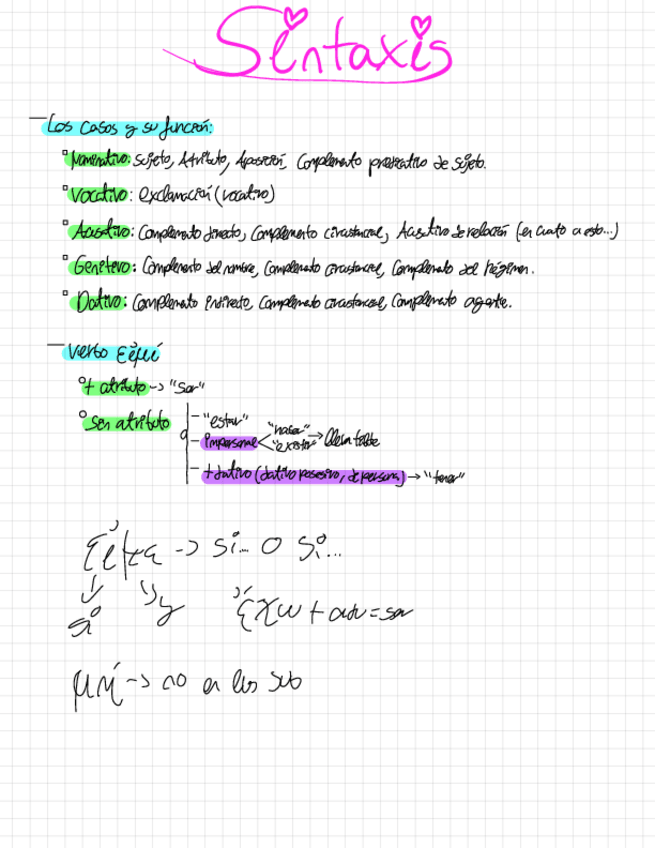 Sintaxis
— Los casos y su función:
▫ Nominativo: Sujeto, Atributo, Aposición, Complemento predicativo de sujeto.
▫ Vocativo: exclamación (vocativo)
▫ Acusativo: Complemento directo, Complemento circustancial, Acusativo de relación (en cuanto a esto...)
▫ Genitivo: Complemento del nombre, Complemento circustancial, Complemento del régimen.
▫ Dativo: Complemento indirecto, Complemento circustancial, Complemento agente.
— Verbo εἰμί
° + atributo -> "Ser"
° sin atributo
- "estar"
- impersonal < "haber" "existir" ->
- + dativo (dativo posesivo, de persona) -> "tener"
-> si... o si...
si y ἔχω + adv = ser
μή -> no en las sub